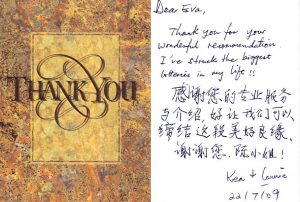 THANK YOU
Dear Eva,
Thank you for your
wonderful recommendation.
I've struck the biggest
lotteries in my life!!
感谢您的专业服务
与介绍,好让我们可以
缔结这段美好良缘.
谢谢您,陈小姐!
Ken + Connie
22/7/09